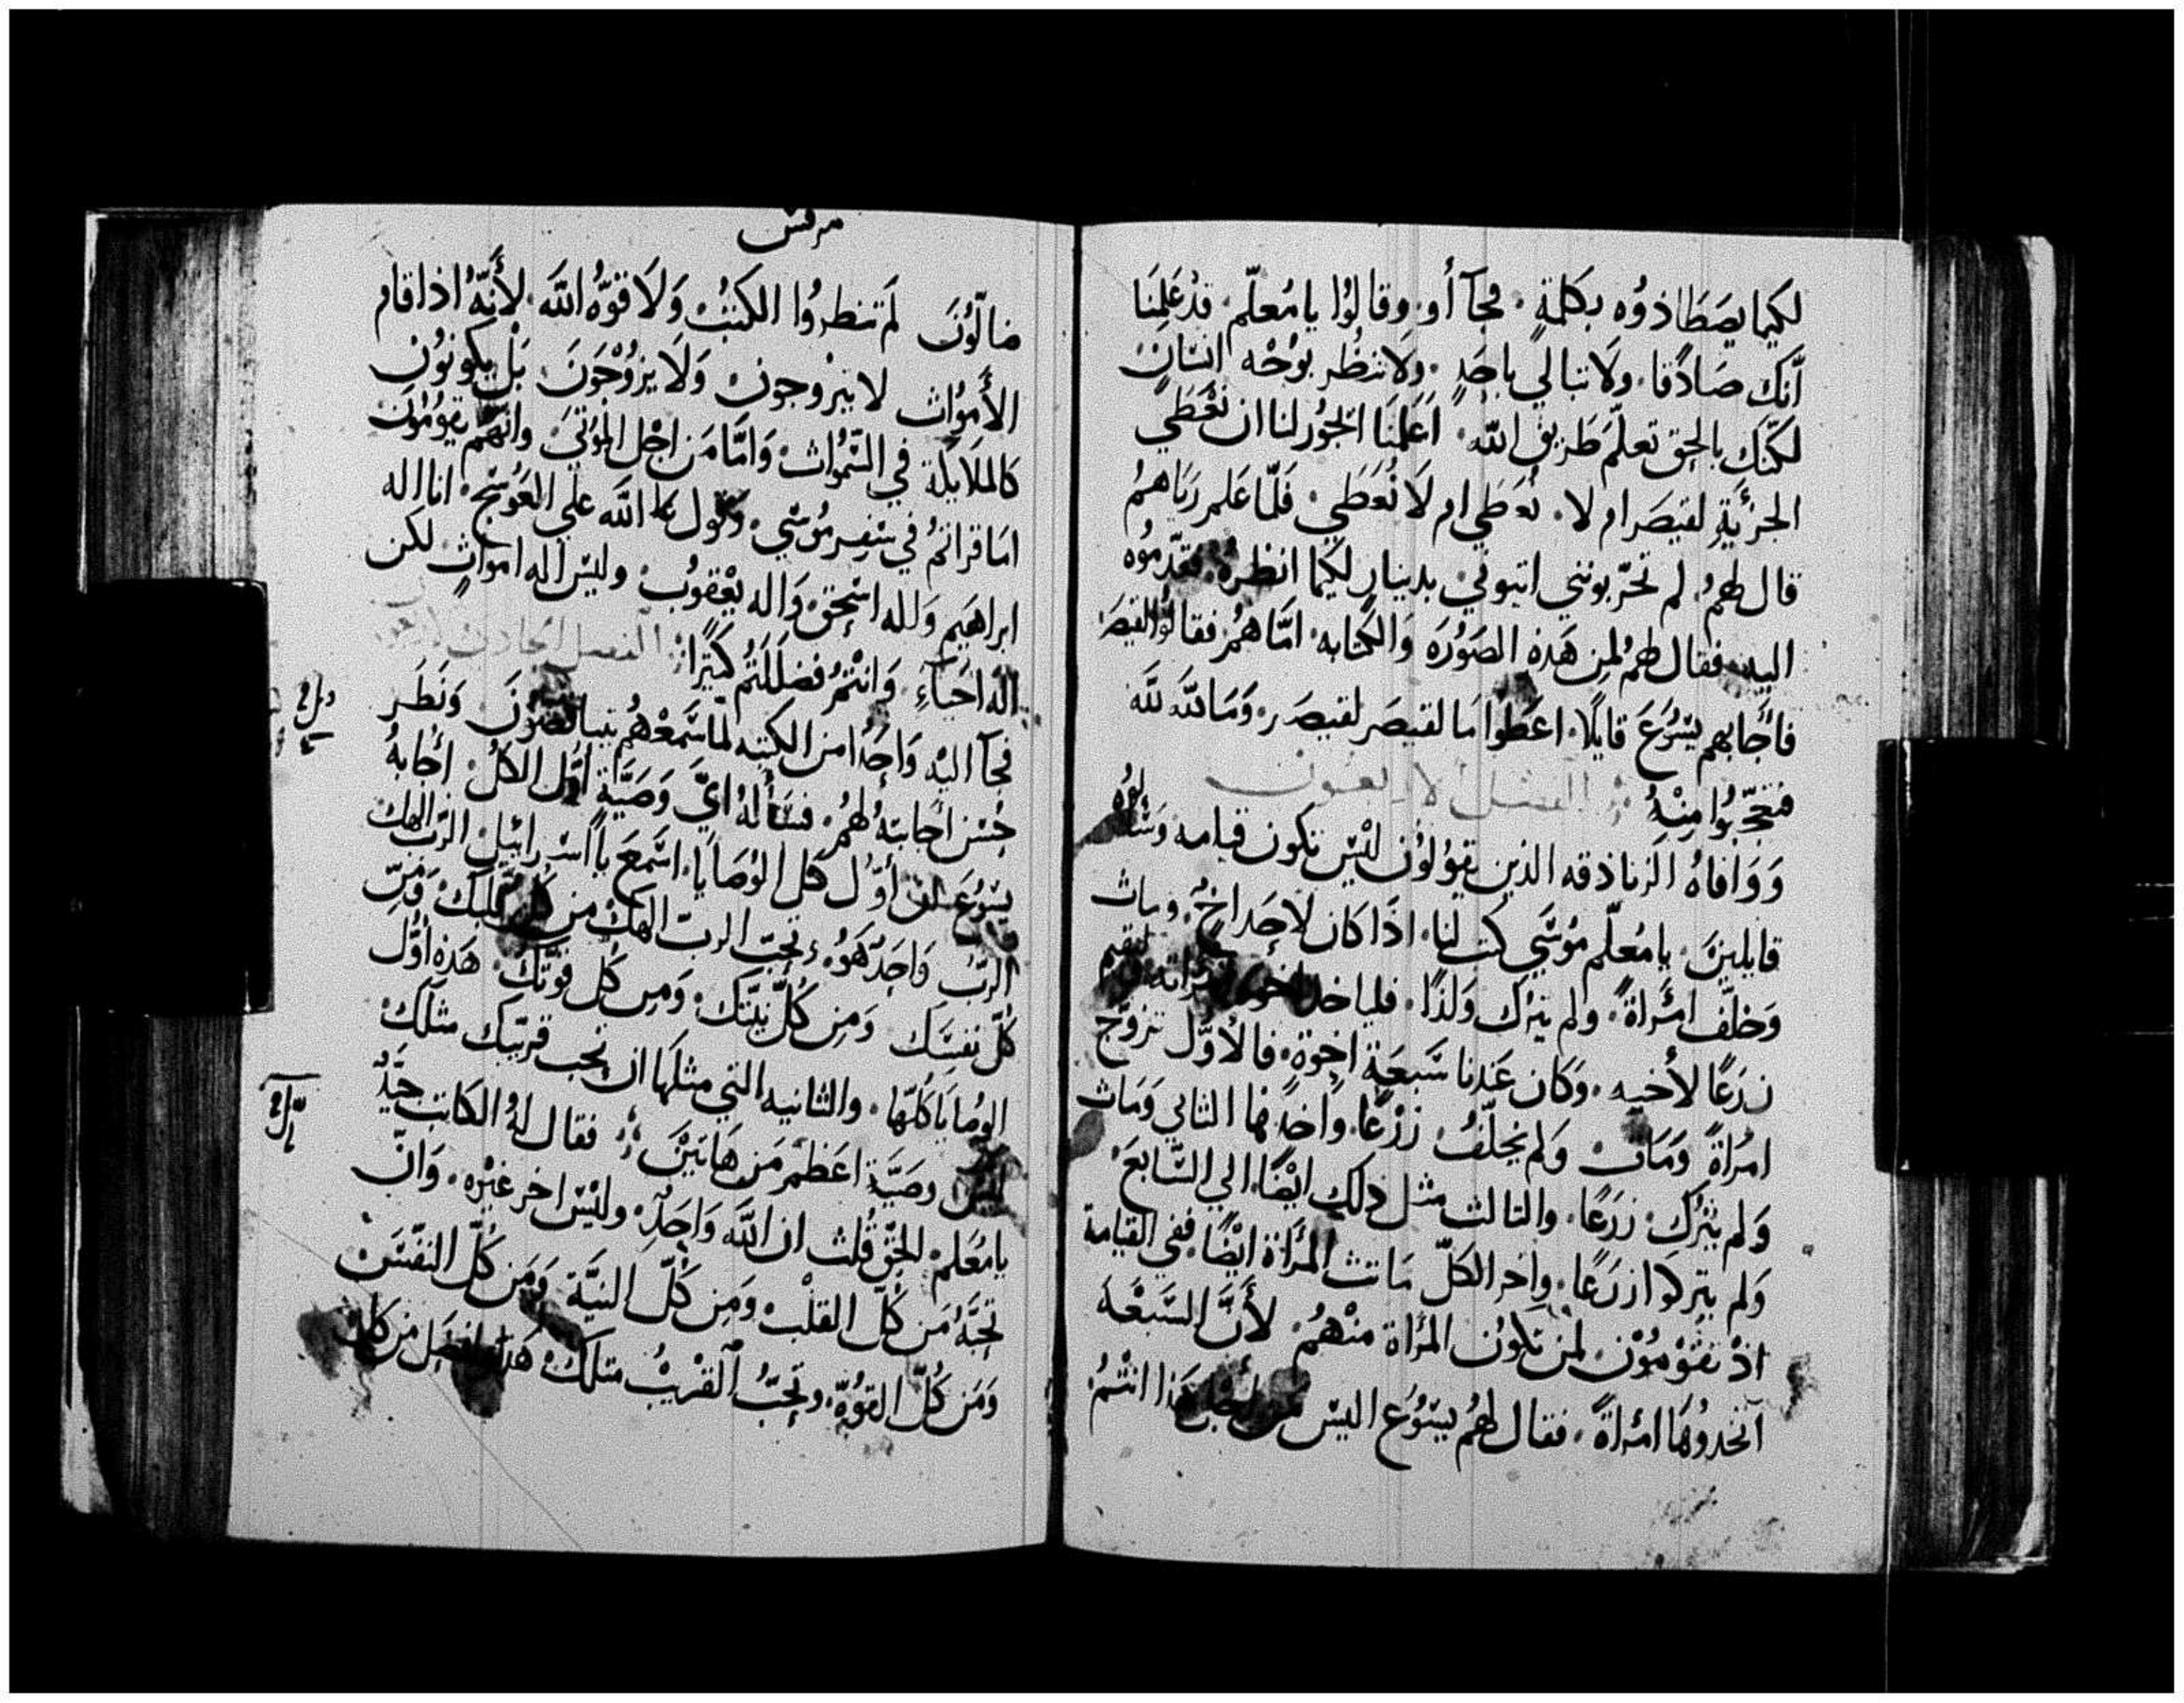 لكيما يصَطَاذوُه بكلمةٍ. فجآأو. وقالوُا يا مُعلّم. قدْ عَلِمنَا
أنَّك صَادًقا. ولا تبالي باحَدٍ. ولا تنظُر بوُجْه انسَانٍ
لكنّك بالحق تعلّم طَريق الله. اَعَلمنَا اتجوُر لنا ان نعْطَي
الجزْيَةِ لقيصَر ام لا. نُعَطي ام لَا نُعَطَي. فَلّما عَلم رَيَاهمُ
قال لهمُ. لم تجرّبونني ايتوني بدينارٍ لكيما انظرهُ. فقدّموُه
اليه. فقال لهمُ لمن هَذهِ الصَوُرَه وَالكتابه. امّا همُ فقالوُا لقيصَر
فأجَابهم يسُوُعَ قايلًا. اعَطُوا مَا لقيصَر لقيصَر. وَمَا لله لله
فتعجّبوُا مِنْهُ الفصل الاربعون
وَوَافاهُ الزنادقه الذين يقوُلوُن ليْس تكون قيامه وَسَالوُه
قايلينَ. يا مُعلّم موُسَي كتب لنا. اذَا كان لاحَد اخٌ. ومات
وَخلّف امْرَاةً. ولم يترك وَلدًا. فلياخد اخوه امراته ليقيم
زرَعًا لأخيه. وَكان عَندنا سَبعَة اخِوَةٍ. فالأوَّل تزوّج
امرَاةً وَمَات وَلم يخلّفُ زرْعًا. وَاخدٍها الثاني وَمَات
وَلم يتْرك زرَعًا. والتالت مثل ذلك ايْضًا. الي السَّابعَ
وَلم يتركوا زرَعًا. واخر الكلّ مَاتت المرْأة ايْضًا. ففي القيامة
اذْ يقوْمُوْن. لمن تكوُن المرْأة منْهمُ. لأنَّ السَبعْة
آتخدوُها امرْاةً. فقال لهمُ يسُوُع اليس من اجل هَذا انتْمُ
مرقس
ضالّوُن لَم تنظروُا الكتبُ وَلَا قوّهُ الله. لأنَّهُ اذا قام
الأمَوُات لا يتزْوجون وَلَا يزوْجَونَ بَل يكونوُن
كالملَايكَة في السَّموُات وَامَّا مَن اجْل الموْتيَ وانهمّ يقوُموُن
امَا قراتمُ في سَفِر موُسَي. وَقول الله عَلي العَوسَج. انا اله
ابراهيَم وَاله اسْحِقَ وَاله يعْقوُب. وليس اله امَواتٍ لكن
الَه احَيآءِ. وَانتمُْ فضَلَلتمُ كتيرًا الفصل الحادي والاربعون
فجآ اليْه وَاحَدًا من الكتبه لمّا سَمعْهمُ يتباحَثوُنَ وَنَظَر
حُسْن اجَابتهُ لهمُ. فسَألهُ ايّ وَصَيَّة اوَّل الكل. اجَابهُ
يسُوُعَ ان أوّل كل الوُصَايَا. اسَمعَ يا اسْرائيل الرّب الهك
الربّ وَاحَدٌ هَوُ. وتحَب الرب الهك من كل قلبَك. وَمِن
كلّ نفسَك وَمِن كُلّ نيّتك. وَمِن كُل قوّتك. هَذِه اوُّل
الوُصايَا كلّها. والثانيه التي مثلَها ان تحب قريبَك مثلَك
ليس وصَيَّة اعَظمَ مَن هَاتَيْن. فقال لهُ الكَاتب جيَّدٌ
يا مُعَلم. الحَق قُلت ان اللهَ وَاحَدٍ. وليْس اخر غيْرِه. وَانّ
تحبَّهُ مَن كُلّ القلْب. وَمِن كُلّ النيَّة وَمَن كلّ النفسَ
وَمَن كُلّ القوُةِ. وتحَبُ القرْيبُ متلك هَذا افضَل من كل